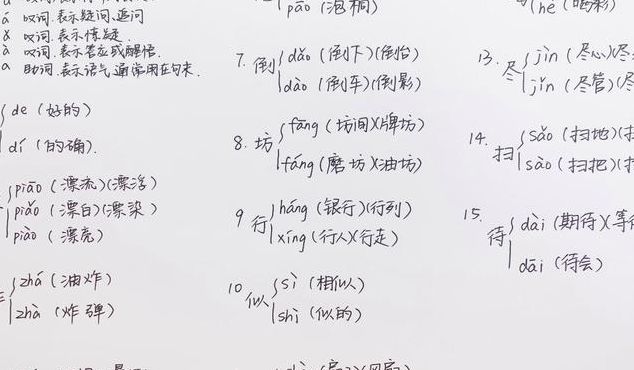 á 叹词.表示疑问.追问
ǎ 叹词.表示惊疑.
à 叹词.表示答应或醒悟.
a 助词.表示语气 通常用在句末.
de (好的)
dí (的确).
piāo (漂流)(漂浮)
piǎo (漂白)(漂染)
piào (漂亮)
zhá (油炸)
zhà (炸弹)
pāo (泡桐)
7. 倒 dǎo (倒下)(倒台)
dào (倒车)(倒影)
8. 坊 fāng (坊间)(牌坊)
fáng (磨坊)(油坊)
9 行 háng (银行)(行列)
xíng (行人)(行走)
10 似 sì (相似)
shì (似的)
hè (喝彩)
13. 尽 jìn (尽心)(尽
jǐn (尽管)(尽
14. 扫 sǎo (扫地)
sào (扫把)
15. 待 dài (期待)(等
dāi (待会)